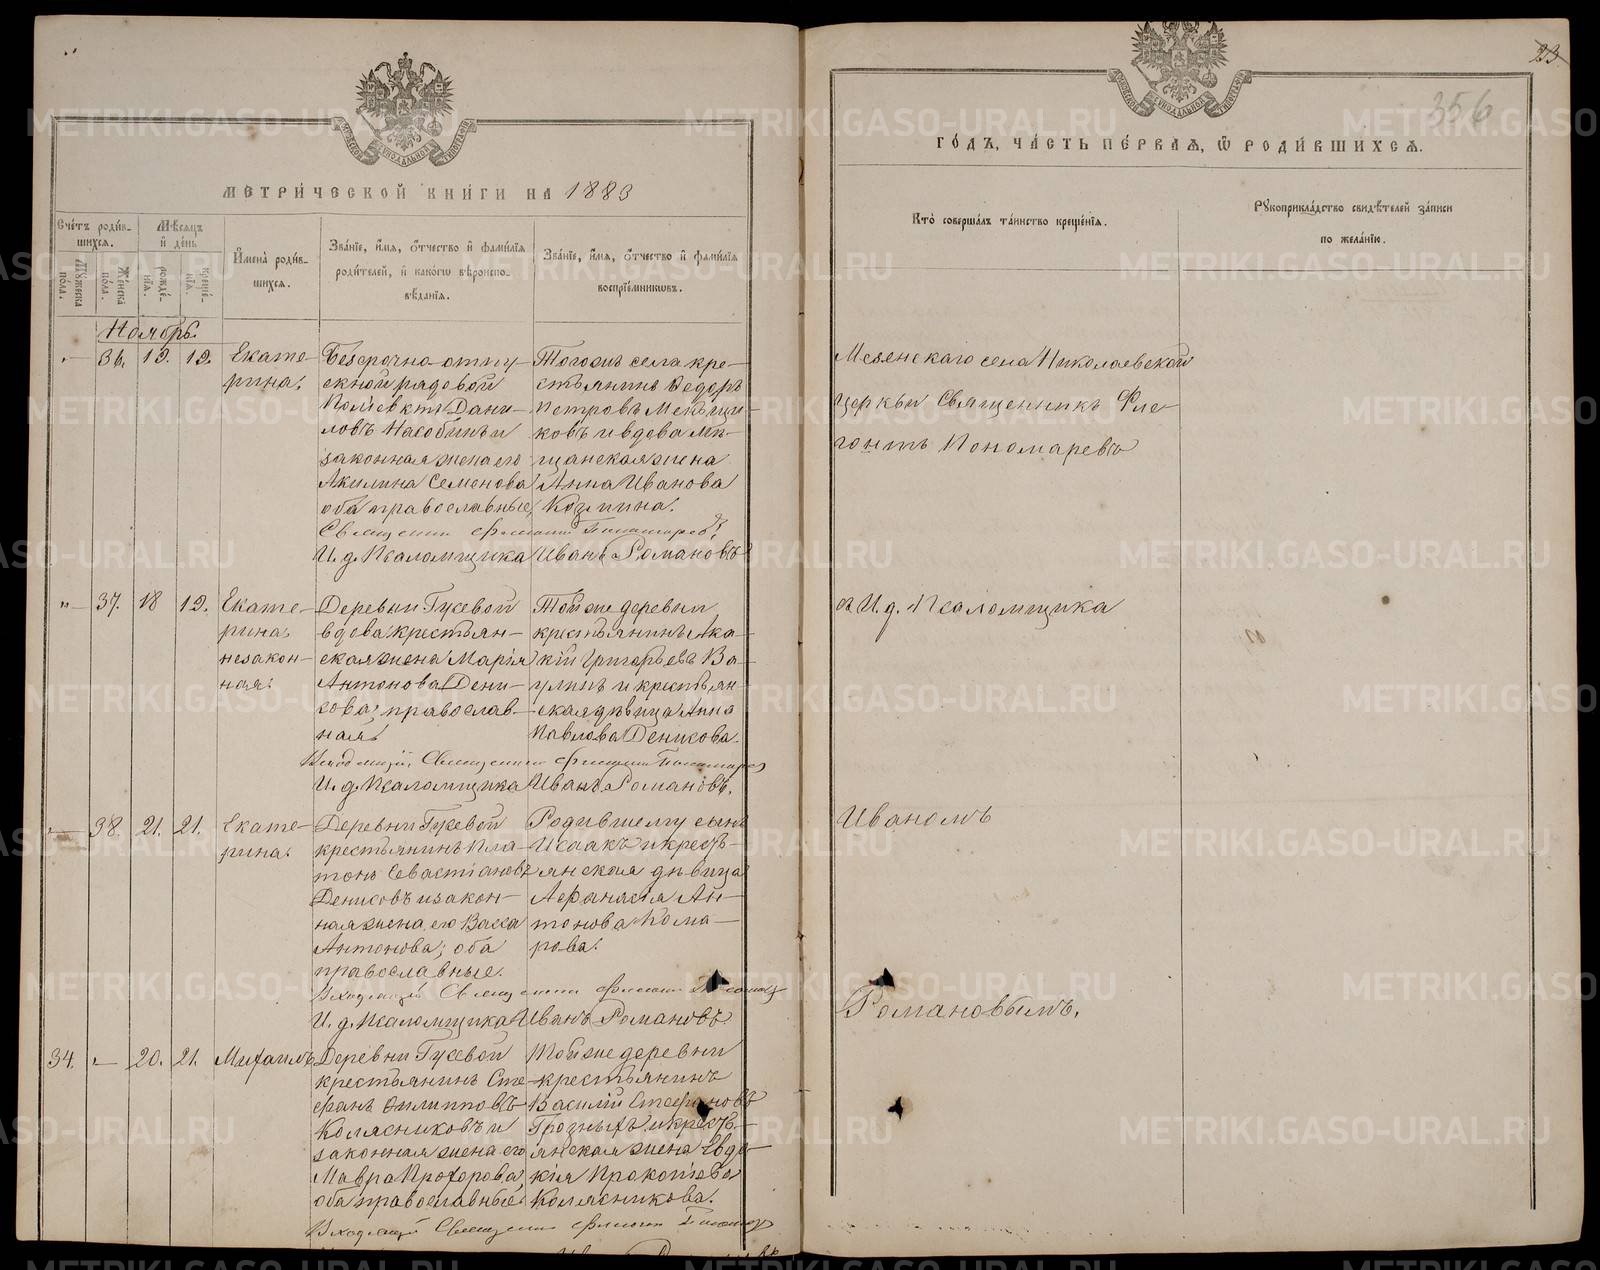 МЕТРИ́ЧЕСКОЙ КНИ́ГИ НА 1883
Сче́тъ роди́в-
шихся.
Му́жеска по́ла.
Же́нска по́ла.
Мѣ́сяцъ и҆ де́нь
рожде́-нїя.
креще́-нїя.
И҆мена̀ роди́в-
шихся.
Зва́нїе, и҆́мя, ѻ҆́тчество и҆ фами́лїя
роди́телей, и҆ како́гѡ вѣроиспо-
вѣ́данїя.
Зва́нїе, и҆́мя, ѻ҆́тчество и҆ фами́лїя
воспрїе́мникѡвъ.
Ноябрь.
„ 36. 19. 19.
Екате-
рина.
Безсрочно-отпу-
скной рядовой
Полiевктъ Дани-
ловъ Насобинъ и
законная жена его
Акилина Семенова
оба православные.
Тогоже села кре-
стьянинъ Ѳедоръ
Петровъ Меньщи-
ковъ и вдова Мѣ-
щанская жена
Анна Иванова
Козмина.
И. д. Псаломщика Иванъ Романовъ
„ 37. 18 19.
Екате-
рина.
незакон-
ная.
Деревни Гусевой
вдова крестьян-
ская жена Марiя
Антонова Дени-
сова, православ-
ная.
Тойже деревни
крестьянинъ Ака-
кiй Григорьевъ Ва-
улинъ и крестьян-
ская дѣвица Анна
Павлова Денисова.
И. д. Псаломщика Иванъ Романовъ.
38. 21. 21.
Екате-
рина.
Деревни Гусевой
крестьянинъ Пла-
тонъ Севастiановъ
Денисовъ и закон-
ная жена его Васса
Антонова; оба
православные.
Родившему сынъ
Исаакъ и кресть-
янская дѣвица
Аѳанасiя Ан-
тонова Кома-
рова.
И. д. Псаломщика Иванъ Романовъ
34. „ 20. 21.
Михаилъ
Деревни Гусевой
крестьянинъ Сте-
фанъ Филипповъ
Колясниковъ и
законная жена его
Мавра Прохорова,
оба православные.
Тойже деревни
крестьянинъ
Василiй Стефановъ
Грозныхъ и кресть-
янская жена Евдо-
кiя Прокопьева
Колясникова.
23
356
ГО́ДЪ, ЧА́СТЬ ПЕ́РВАЯ, Ѽ РОДИ́ВШИХСЯ.
Кто̀ соверша́лъ та́инство креще́нїя.
Рꙋкоприкла́дство свидѣ́телей за́писи
по жела́нїю.
Мезенскаго села Николаевской
церкви Священникъ Фле-
гонтъ Пономаревъ
съ И. д. Псаломщика
Иваномъ
Романовымъ.
METRIKI.GASO-URAL.RU